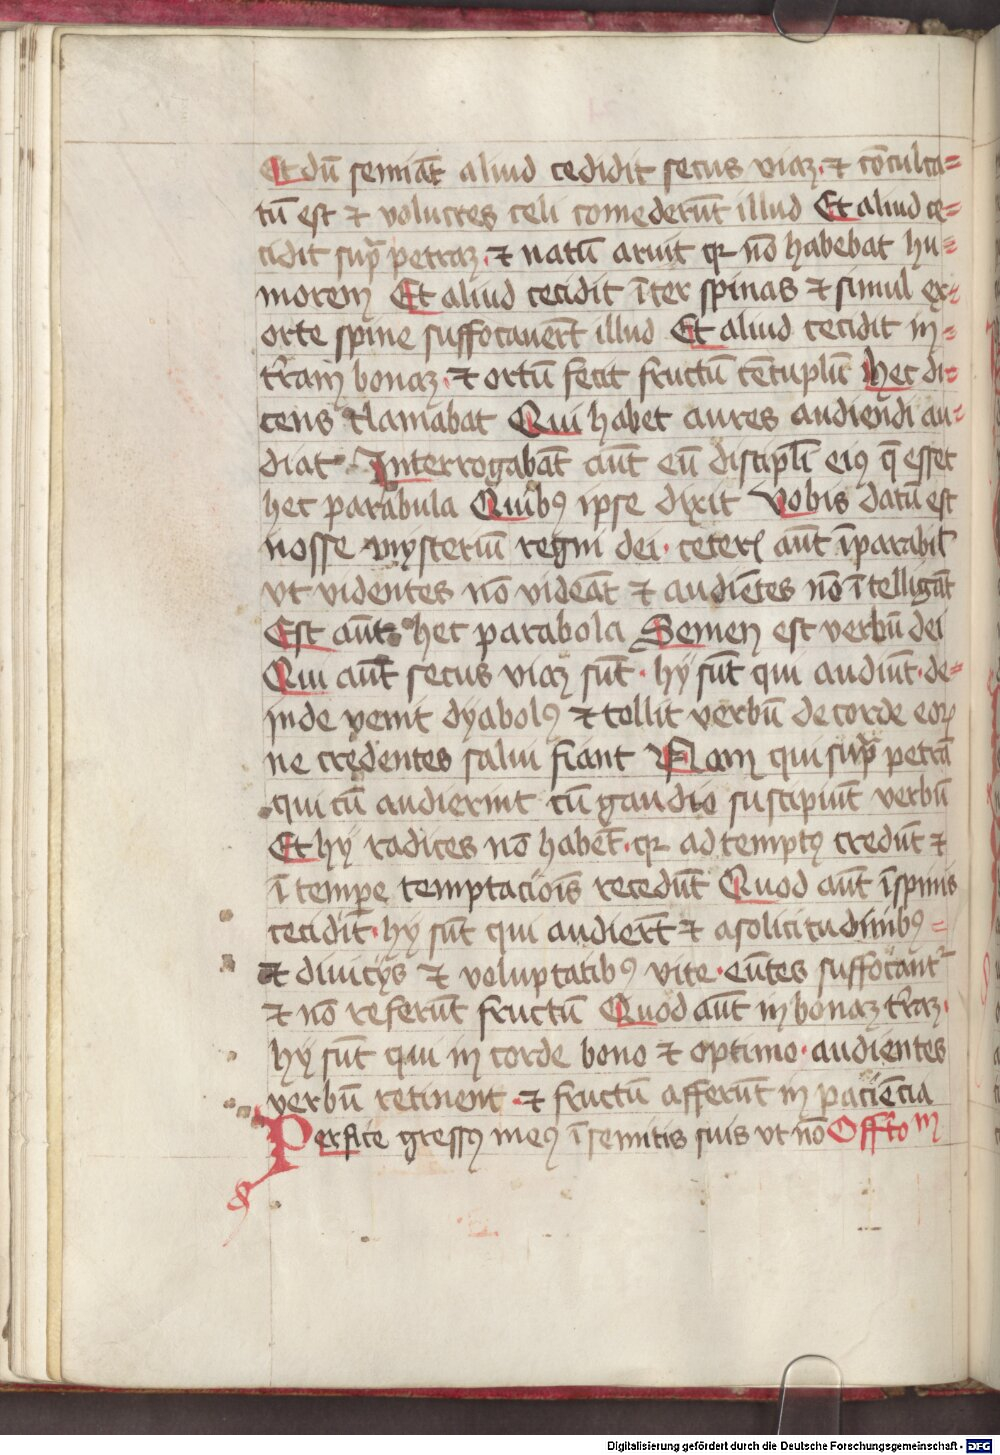 Et dū semīat̄ aliud cedidit secus viaȝ · ⁊ cōculca=
tū est ⁊ volucres celi comederūt illud Et aliud ce=
cidit sup̄ petraȝ · ⁊ natū aruit qr nō habebat hu=
morem Et aliud cecidit īter spinas ⁊ simul ex=
orte spine suffocauerūt illud Et aliud cecidit in=
t̄ram bonaȝ · ⁊ ortū fecit fructū cētuplū Hec di=
cens clamabat Qui habet aures audiendi au=
diat Interrogabāt aūt eū discipl̄i eiꝯ q̄ esset
hec parabula Quibꝯ ipse dixit Vobis datū est
nosse mysteriū regni dei · ceteris aūt ī parabil̄
vt videntes nō videāt ⁊ audiētes nō ītelligāt
Est aūt hec parabola Semen est verbū dei
Qui aūt secus viaȝ sūt · hÿ sūt qui audiūt · de=
inde venit dyabolꝯ ⁊ tollit verbū de corde eoꝝ
ne credentes salui fiant Nam qui sup̄ petrā
qui cū audierint cū gaudio suscipiūt verbū
Et hÿ radices nō habēt · qr ad tempꝯ credūt ⁊
ī tempe temptaciōis recedūt Quod aūt ī spinis
cecidit · hÿ sūt qui audierūt ⁊ a solicitudinibꝯ =
⁊ diuicÿs ⁊ voluptatibꝯ vite · eūtes suffocantᷣ
⁊ nō referūt fructū Quod aūt in bonaȝ t̄raȝ ·
hÿ sūt qui in corde bono ⁊ optimo · audientes
verbū retinent · ⁊ fructū afferūt in paciēcia
Perfice gressꝯ meꝯ ī semitis suis vt nō Offto m
Digitalisierung gefördert durch die Deutsche Forschungsgemeinschaft - DFG